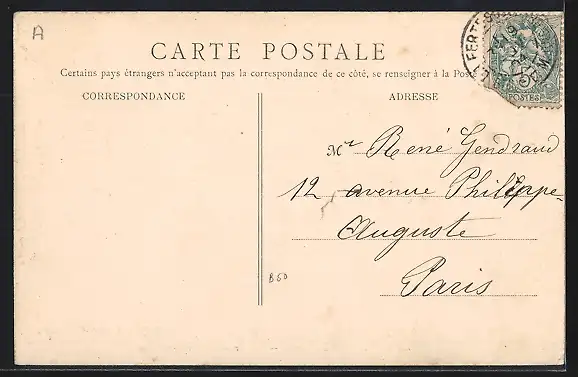 A
CARTE POSTALE
Certains pays étrangers n'acceptant pas la correspondance de ce côté, se renseigner à la Poste
CORRESPONDANCE
ADRESSE
POSTES
Mr René Gendraud
12 avenue Philippe-
Auguste
Paris
B50